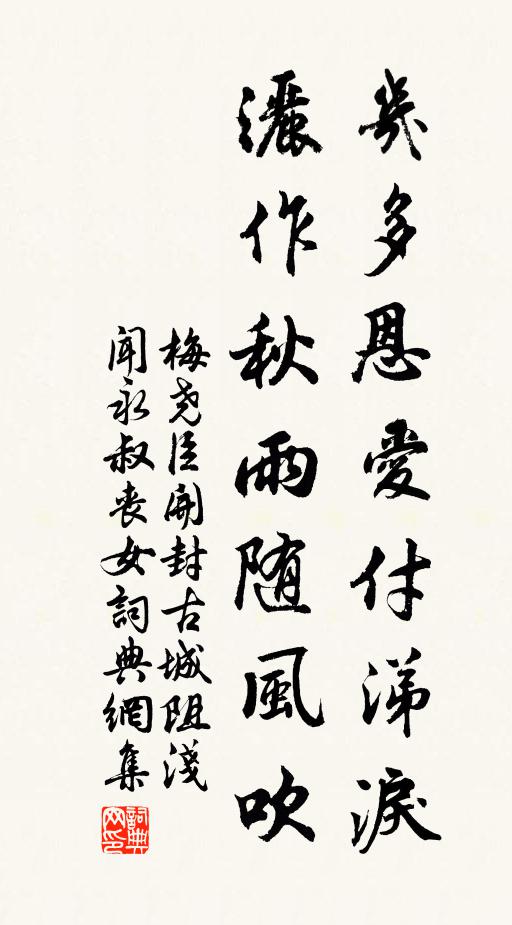 幾多恩愛付涕淚
灑作秋雨随風吹
梅堯臣開封古城阻淺
聞永叔喪女詞典網集
詞典
网印